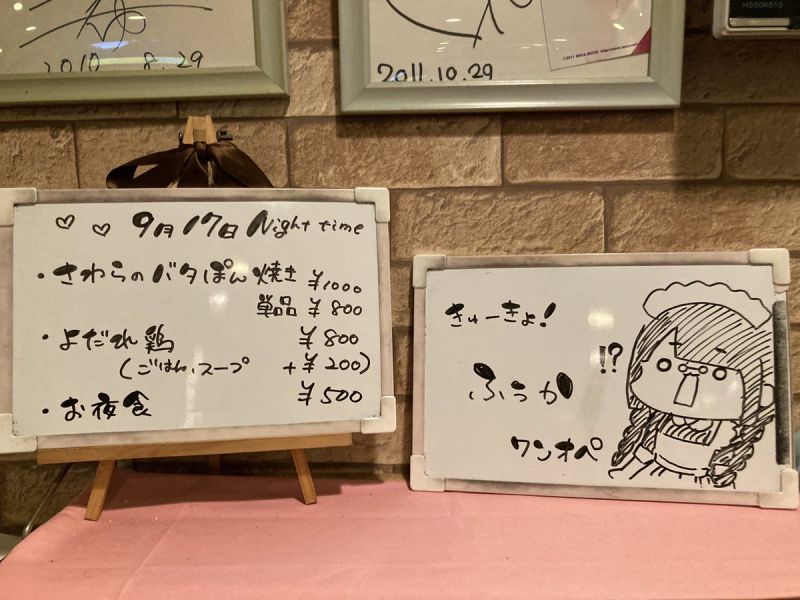 2010 8.29
2011.10.29
HS50K610
♡ ♡ 9月17日 Night time
・さわらのバタぽん焼き ¥1000
単品 ¥800
・よだれ鶏 ¥800
(ごはん、スープ +¥200)
・お夜食 ¥500
きゅーきょ!
ふうか
ワンオペ
!?